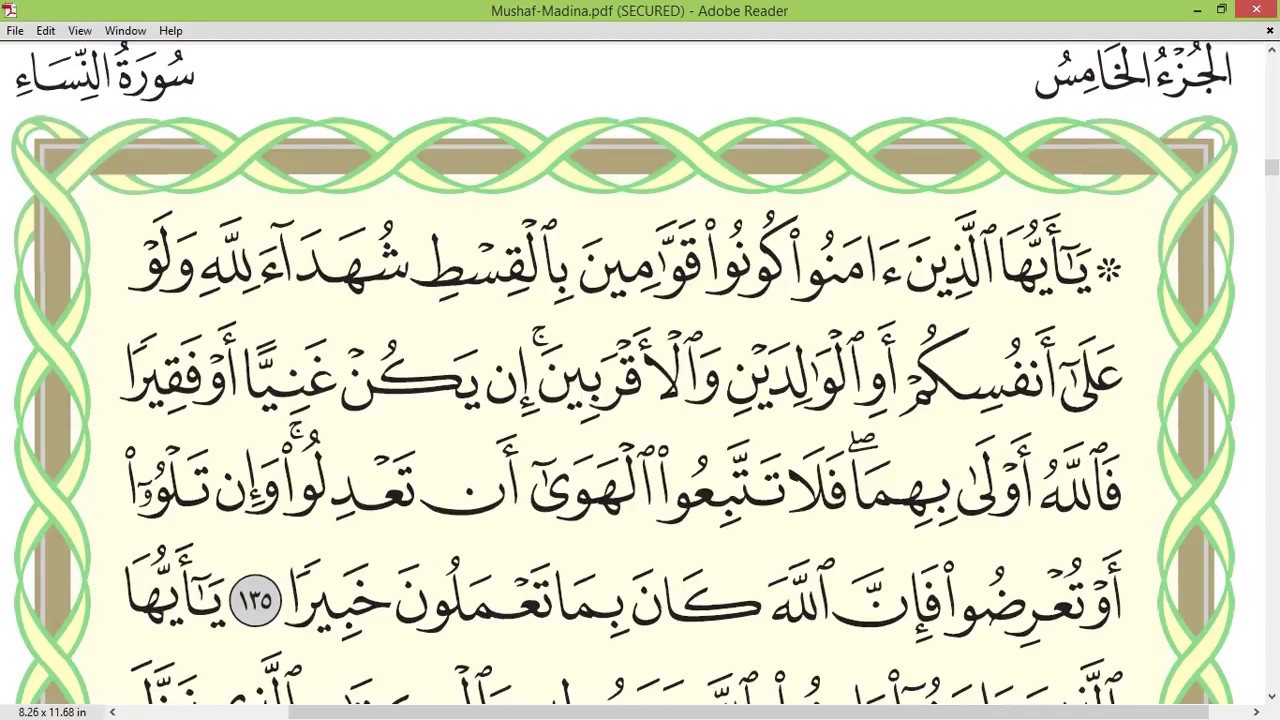 Mushaf-Madina.pdf (SECURED) - Adobe Reader
File Edit View Window Help
الجُزْءُ الخَامِسُ سُورَةُ النِّسَاءِ
۞ يَٰٓأَيُّهَا ٱلَّذِينَ ءَامَنُوا۟ كُونُوا۟ قَوَّٰمِينَ بِٱلْقِسْطِ شُهَدَآءَ لِلَّهِ وَلَوْ
عَلَىٰٓ أَنفُسِكُمْ أَوِ ٱلْوَٰلِدَيْنِ وَٱلْأَقْرَبِينَ ۚ إِن يَكُنْ غَنِيًّا أَوْ فَقِيرًا
فَٱللَّهُ أَوْلَىٰ بِهِمَا ۖ فَلَا تَتَّبِعُوا۟ ٱلْهَوَىٰٓ أَن تَعْدِلُوا۟ ۚ وَإِن تَلْوُۥٓا۟
أَوْ تُعْرِضُوا۟ فَإِنَّ ٱللَّهَ كَانَ بِمَا تَعْمَلُونَ خَبِيرًا ١٣٥ يَٰٓأَيُّهَا
8.26 x 11.68 in